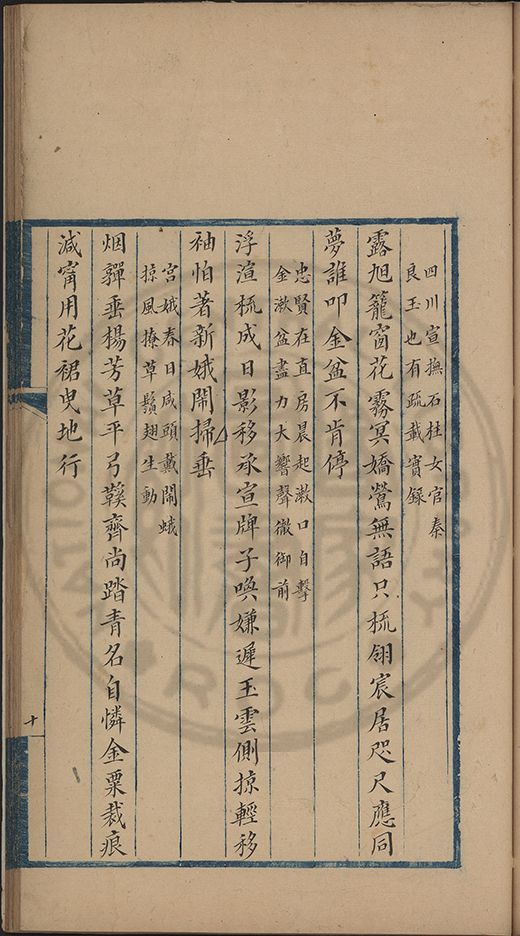 四川宣撫石柱女官秦
良玉也有疏載實錄
露旭籠窗花霧冥嬌鶯無語只梳翎宸居咫尺應同
夢誰叩金盆不肯停
忠賢在直房晨起漱口自擊
金漱盆盡力大響聲徹御前
浮渲梳成日影移承宣牌子喚嫌遲玉雲側掠輕移
袖怕著新娥鬧掃垂
宮娥春日咸頭戴鬧蛾
掠風撩草鬚翅生動
烟嚲垂楊芳草平弓鞵齊尚踏青名自憐金粟裁痕
減甯用花裙曳地行
十